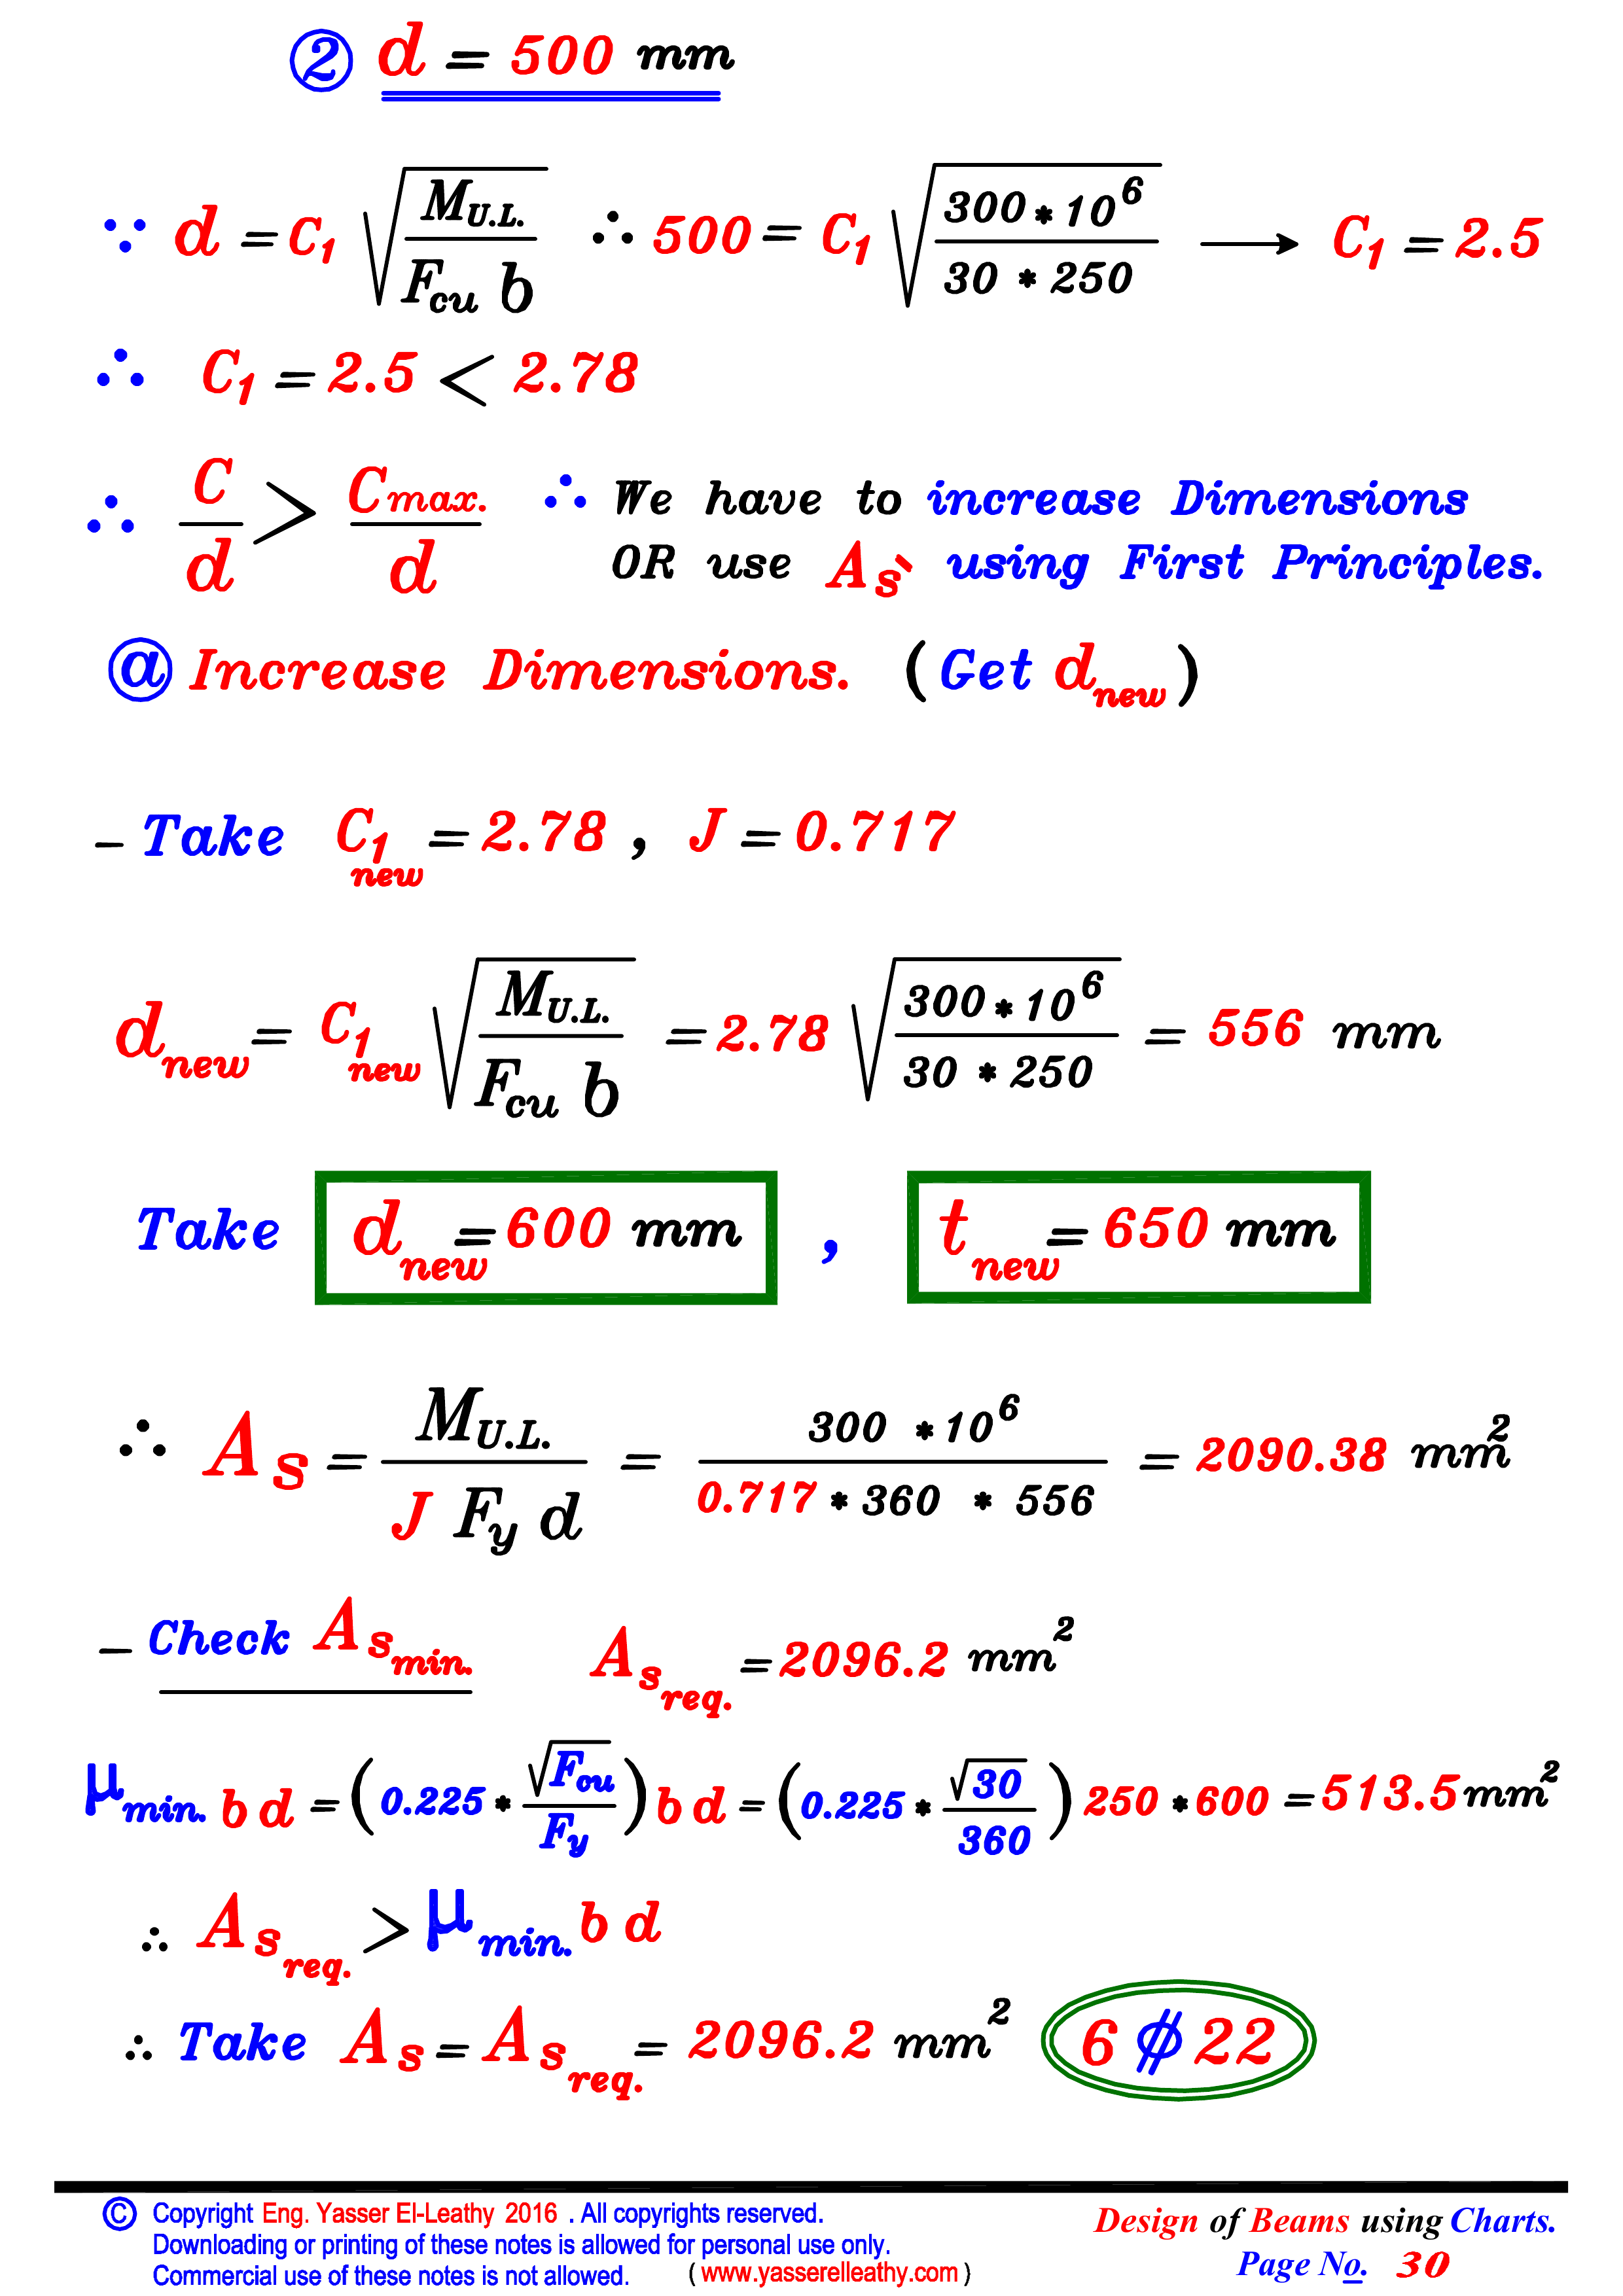 ② d = 500 mm
∵ d = C₁ √(M_U.L. / F_cu b) ∴ 500 = C₁ √(300 * 10⁶ / 30 * 250) → C₁ = 2.5
∴ C₁ = 2.5 < 2.78
∴ C/d > C_max./d ∴ We have to increase Dimensions
OR use A_s' using First Principles.
ⓐ Increase Dimensions. ( Get d_new )
- Take C₁_new = 2.78 , J = 0.717
d_new = C₁_new √(M_U.L. / F_cu b) = 2.78 √(300 * 10⁶ / 30 * 250) = 556 mm
Take d_new = 600 mm , t_new = 650 mm
∴ A_s = M_U.L. / J F_y d = 300 * 10⁶ / 0.717 * 360 * 556 = 2090.38 mm²
- Check A_s_min. A_s_req. = 2096.2 mm²
μ_min. b d = (0.225 * √F_ou / F_y) b d = (0.225 * √30 / 360) 250 * 600 = 513.5 mm²
∴ A_s_req. > μ_min. b d
∴ Take A_s = A_s_req. = 2096.2 mm² 6 ⌀ 22
© Copyright Eng. Yasser El-Leathy 2016 . All copyrights reserved.
Downloading or printing of these notes is allowed for personal use only.
Commercial use of these notes is not allowed. ( www.yasserelleathy.com )
Design of Beams using Charts.
Page No. 30